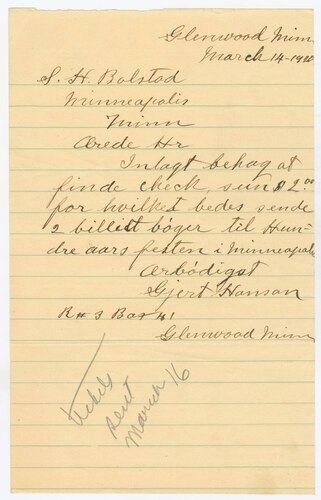 Glenwood Minn
March 14-19
S. H. Bolstad
Minneapolis
Minn
Ærede Hr
Inlagt behag at
finde check, sum $2.00
for hvilket bedes sende
2 billitt bøger til Hun-
dre aars festen i Minneapolis
Ærbödigst
Gjert Hanson
R# 3 Box 41
Glenwood Minn
tickets
sent
March 16